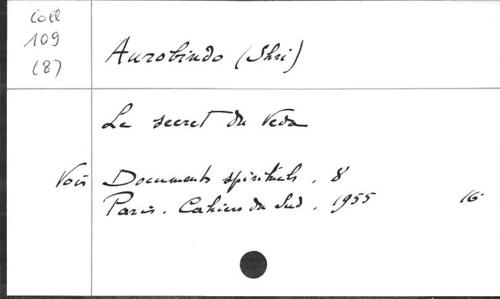 Coll
109
(8)
Aurobindo (Shri)
Le secret du Veda
Voir Documents spirituels. 8
Paris. Cahiers du Sud. 1955 16